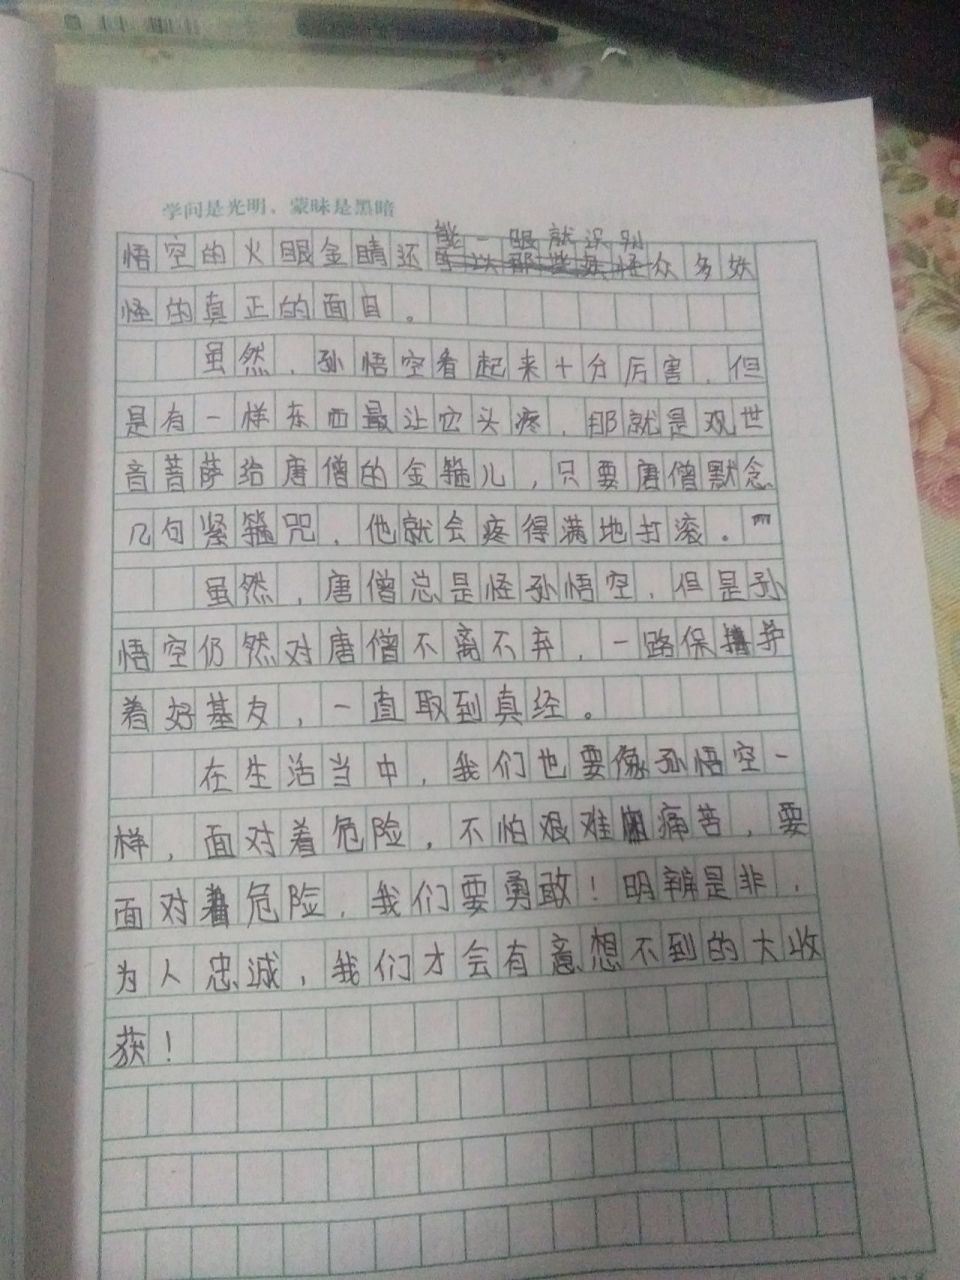 学问是光明，蒙昧是黑暗
能一眼就识别
悟空的火眼金睛还众多妖
怪的真正的面目。
虽然，孙悟空看起来十分厉害，但
是有一样东西最让它头疼，那就是观世
音菩萨给唐僧的金箍儿，只要唐僧默念
几句紧箍咒，他就会疼得满地打滚。
虽然，唐僧总是怪孙悟空，但是孙
悟空仍然对唐僧不离不弃，一路保护
着好基友，一直取到真经。
在生活当中，我们也要像孙悟空一
样，面对着危险，不怕艰难困痛苦，要
面对着危险，我们要勇敢！明辨是非，
为人忠诚，我们才会有意想不到的大收
获！